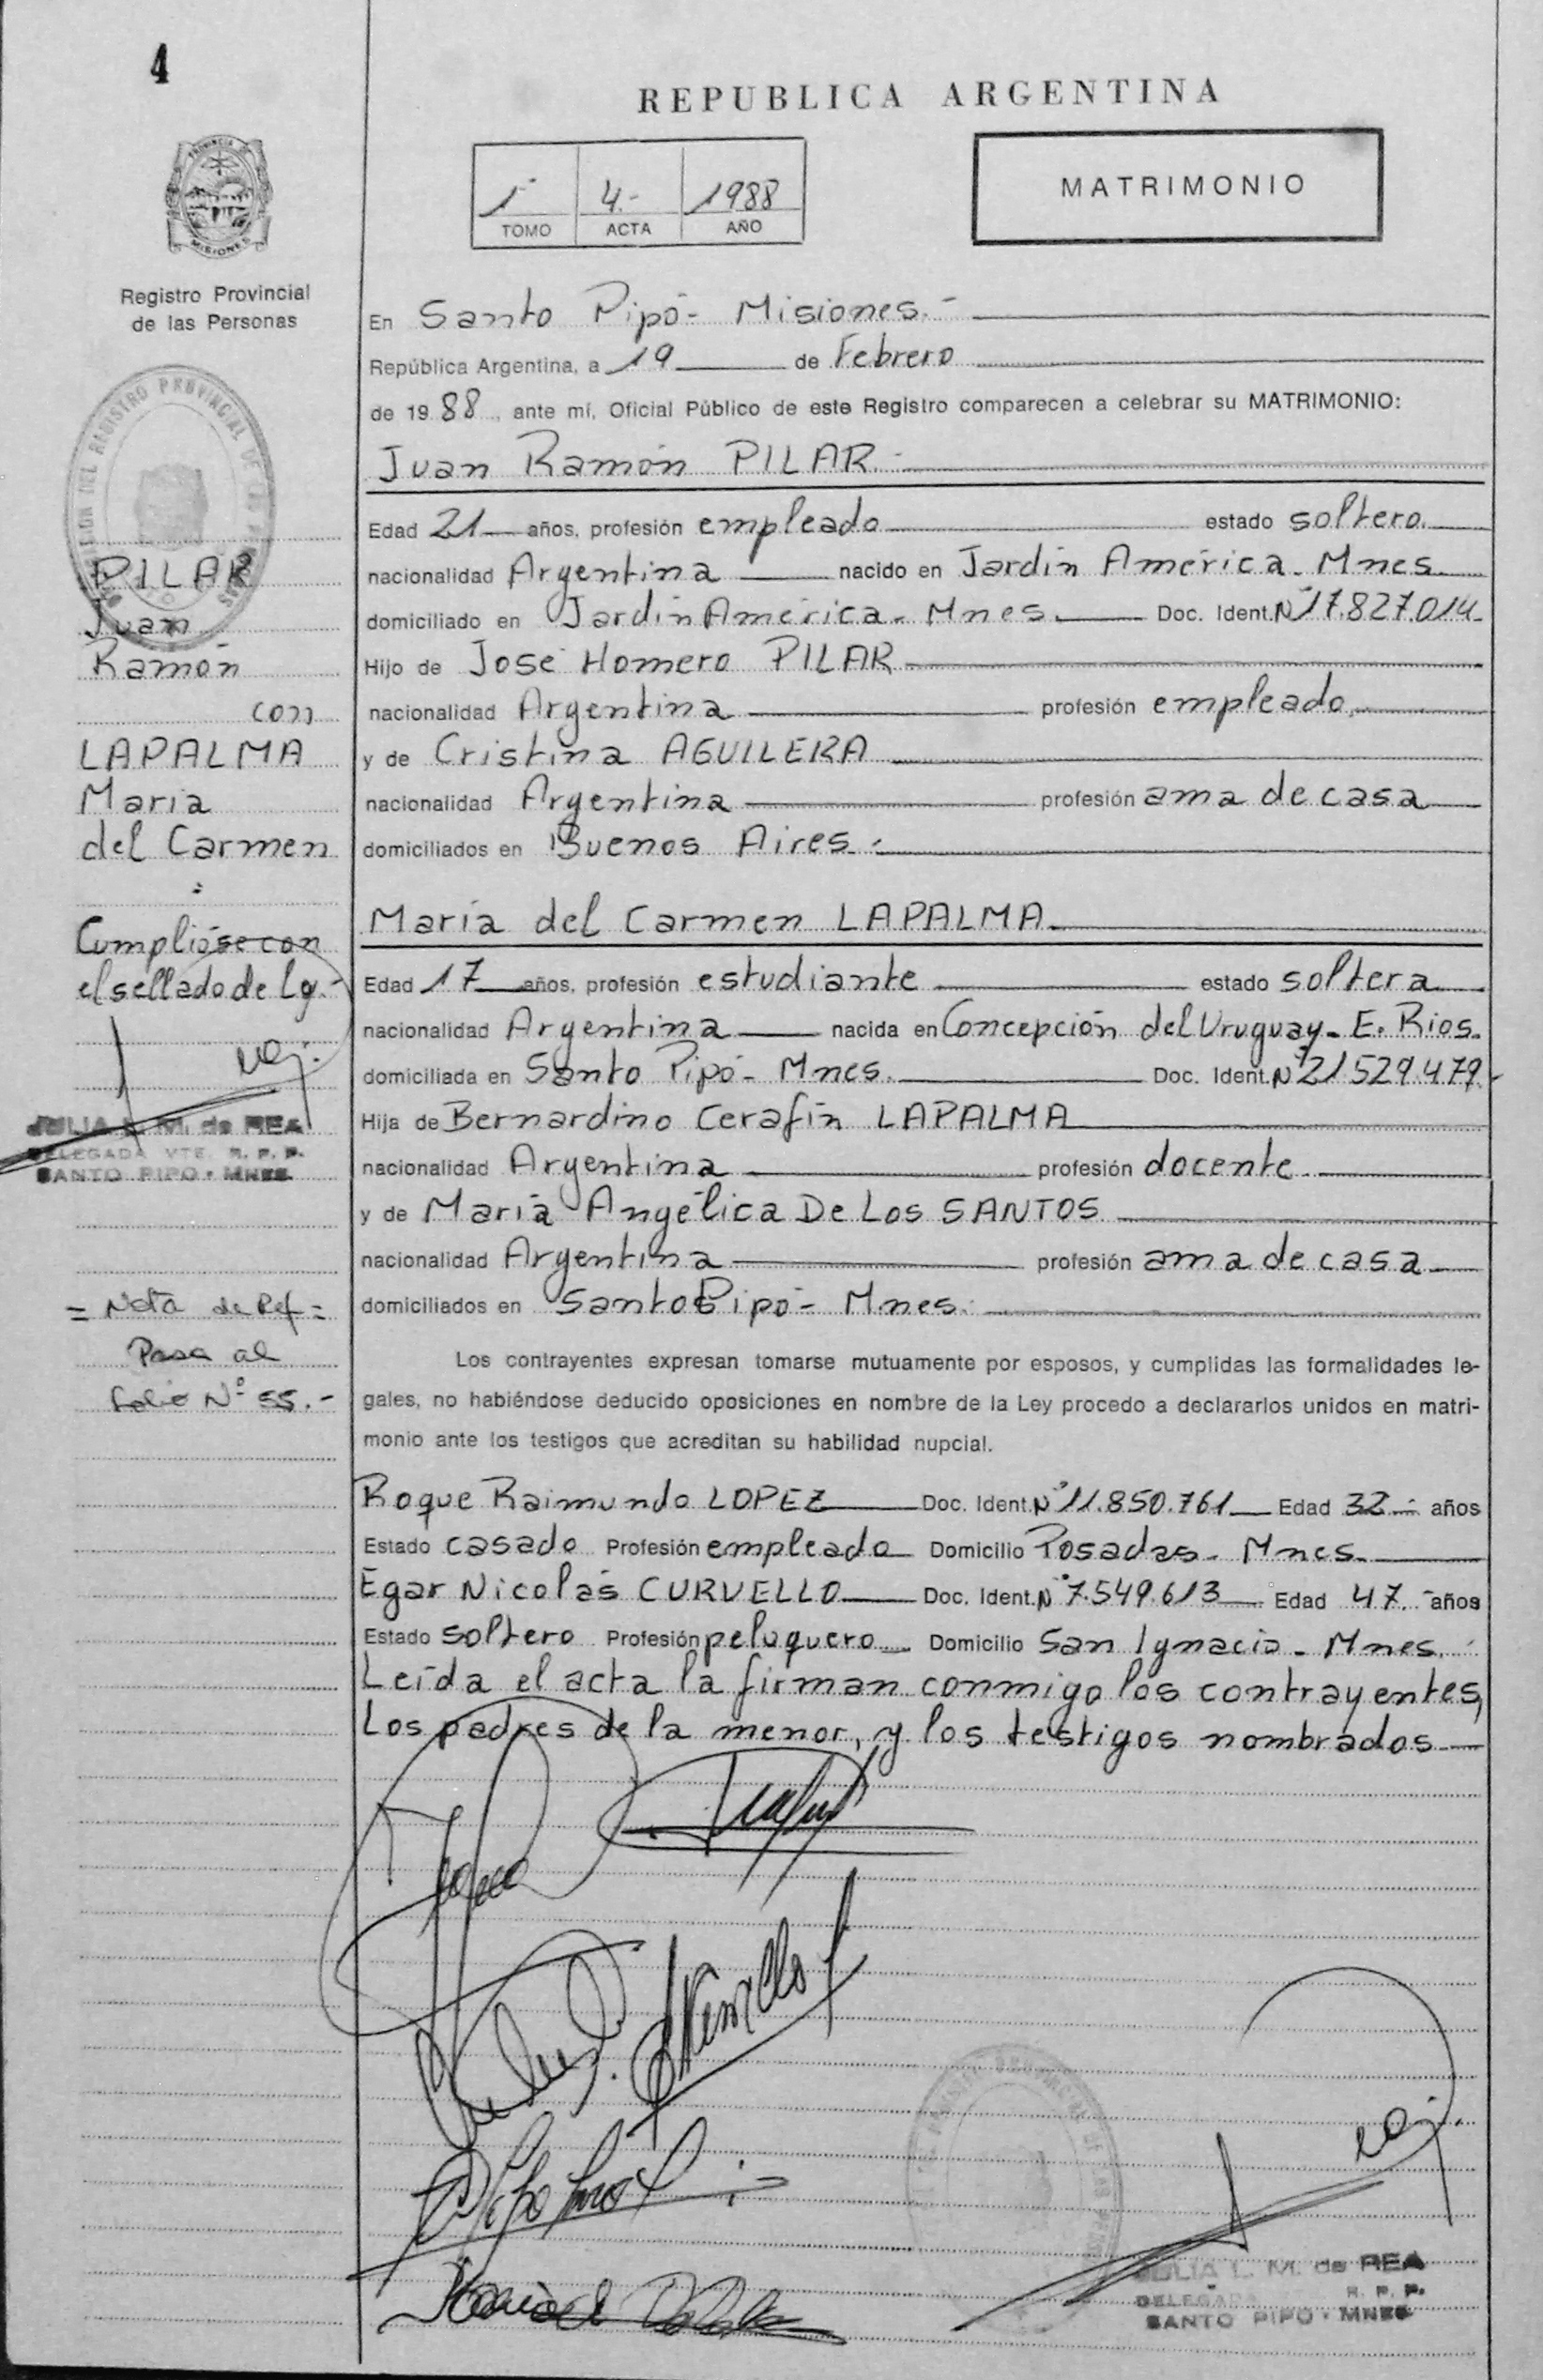 4
REPUBLICA ARGENTINA
PROVINCIA DE
MISIONES
1- 4.- 1988
TOMO ACTA AÑO
MATRIMONIO
Registro Provincial
de las Personas
En Santo Pipó- Misiones.-
República Argentina, a 19 de Febrero
de 1988, ante mí, Oficial Público de este Registro comparecen a celebrar su MATRIMONIO:
Juan Ramón PILAR.-
Edad 21 años, profesión empleado estado soltero.
nacionalidad Argentina nacido en Jardín América- Mnes.
domiciliado en Jardín América- Mnes. Doc. Ident. Nº 17.827.014-
Hijo de José Homero PILAR
nacionalidad Argentina profesión empleado.
y de Cristina AGUILERA
nacionalidad Argentina profesión ama de casa
domiciliados en Buenos Aires.-
PILAR
Juan
Ramón
con
LAPALMA
María
del Carmen
María del Carmen LAPALMA.
Edad 17 años, profesión estudiante estado soltera
nacionalidad Argentina nacida en Concepción del Uruguay- E. Rios.
domiciliada en Santo Pipó- Mnes. Doc. Ident. Nº 21.529.479.-
Hija de Bernardino Cerafín LAPALMA
nacionalidad Argentina profesión docente
y de María Angélica De Los SANTOS
nacionalidad Argentina profesión ama de casa
domiciliados en Santo Pipó- Mnes.
Cumplióse con
el sellado de Ley.-
JULIA L. M. de REA
DELEGADA VTE. R. P. P.
SANTO PIPO - MNES.
= Nota de Ref =
Pasa al
folio Nº 55.-
Los contrayentes expresan tomarse mutuamente por esposos, y cumplidas las formalidades le-
gales, no habiéndose deducido oposiciones en nombre de la Ley procedo a declararlos unidos en matri-
monio ante los testigos que acreditan su habilidad nupcial.
Roque Raimundo LOPEZ Doc. Ident. Nº 11.850.761 Edad 32.- años
Estado casado Profesión empleado Domicilio Posadas- Mnes.
Egar Nicolás CURVELLO Doc. Ident. Nº 7.549.613 Edad 47.- años
Estado soltero Profesión peluquero Domicilio San Ignacio- Mnes.
Leída el acta la firman conmigo los contrayentes,
Los padres de la menor, y los testigos nombrados
JULIA L. M. de REA
DELEGADA R. P. P.
SANTO PIPO - MNES